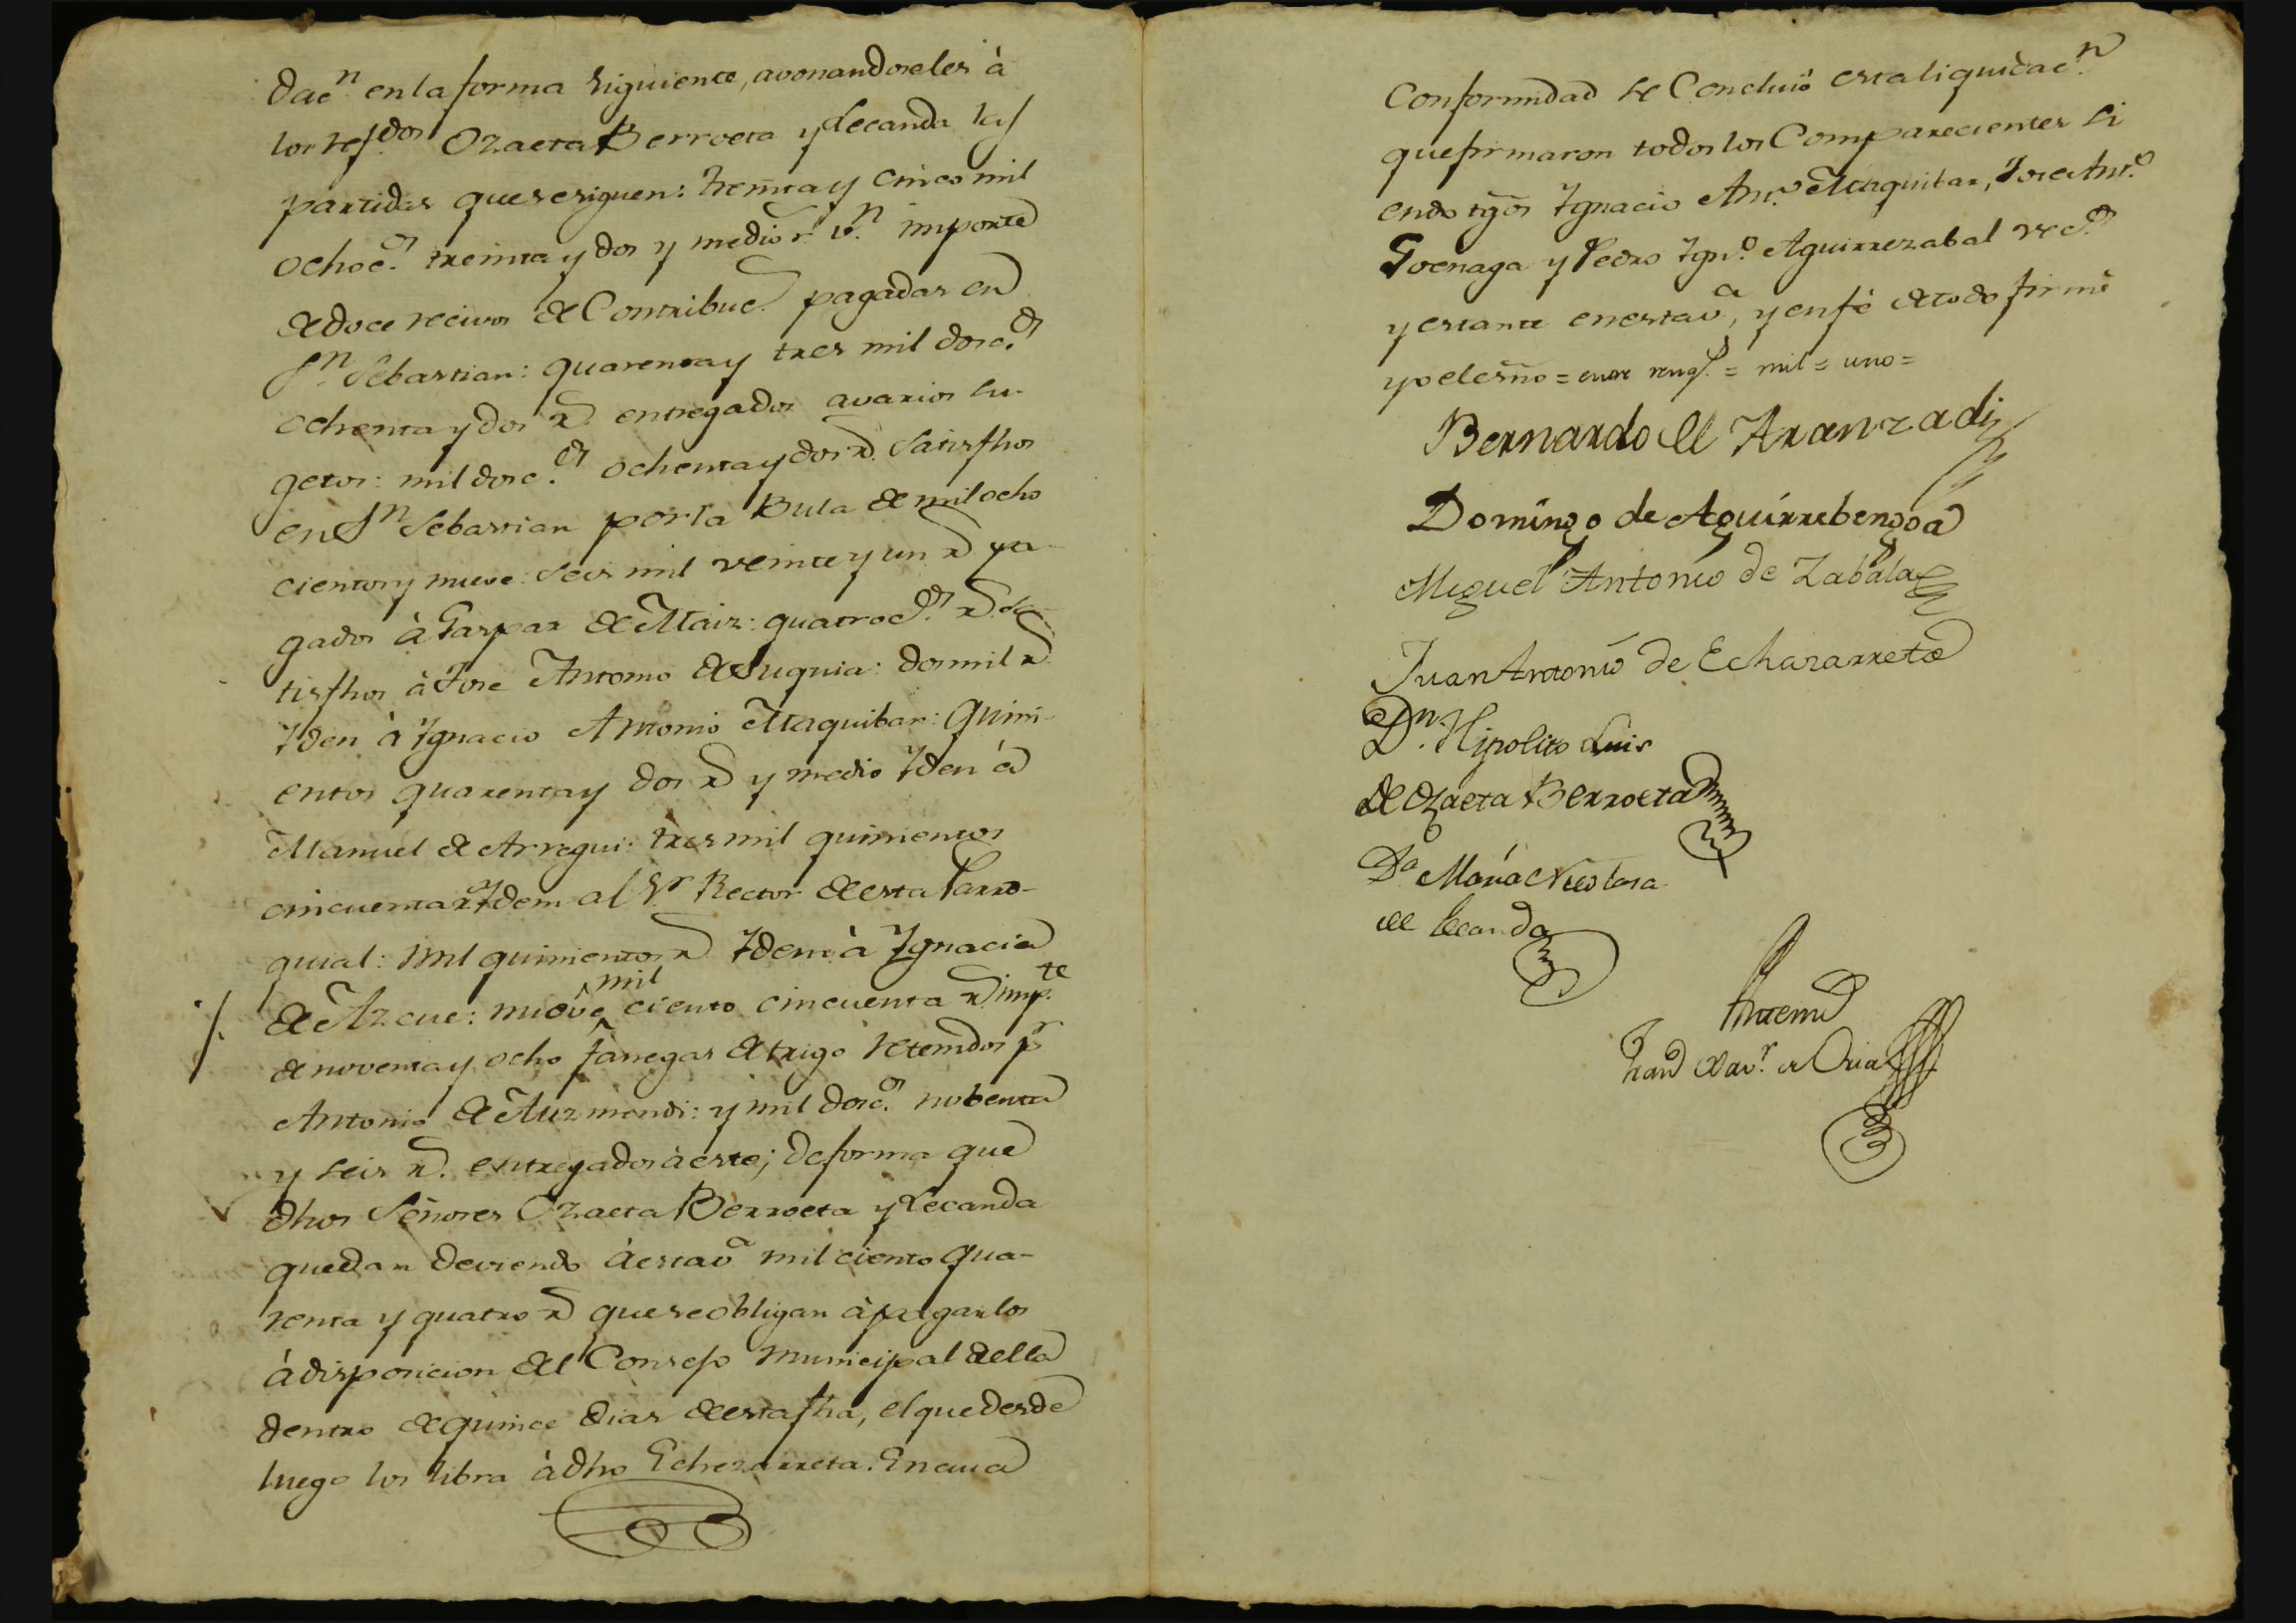 dac.n en la forma siguiente, avonandoseles à
los refdos Ozaeta Berroeta y Lecanda las
partidas que se siguen: treinta y cinco mil
ochoc.os treinta y dos y medio r.s v.n importe
de doce recivos de Contribuc.s pagadas en
S.n Sebastian: quarenta y tres mil dosc.os
ochenta y dos r.s entregados a varios su-
getos: mil dosc.os ochenta y dos r.s satisfhos
en S.n Sebastian por la Bula de mil ocho
cientos y nueve: seis mil veinte y un r.s pa-
gados à Gaspar de Maiz: quatroc.os r.s sa-
tisfhos à Jose Antonio de Suquia: dos mil r.s
Yden à Ygnacio Antonio Maquibar: quini-
entos quarenta y dos r.s y medio Yden à
Manuel de Arregui: tres mil quinientos
cincuenta r.s Ydem al S.r Rector de esta Parro-
quial: mil quinientos r.s Ydem à Ygnacia
mil
de Azcue: nueve ciento cincuenta r.s imp.te
de noventa y ocho fanegas de trigo retenidos p.r
Antonio de Auzmendi: y mil dosc.os nobenta
y seis r.s entregados à este; de forma que
dhos Señores Ozaeta Berroeta y Lecanda
quedan deviendo à esta v.a mil ciento qua-
renta y quatro r.s que se obligan à pagarlos
à disposicion del Consejo Municipal de ella
dentro de quince dias de esta fha, el que desde
luego los libra à dho Echezarreta. En cuia
conformidad se Concluiò esta liquidac.n
que firmaron todos los Comparecientes si
endo tgos Ygnacio Ant.o Maquibar, Jose Ant.o
Goenaga y Pedro Ygn.o Aguirrezabal vec.os
y estante en esta v.a, y en fè de todo firmè
yo el esño = entre rengs. = mil = uno =
Bernardo de Aranzadi
Domingo de Aguirrebengoa
Miguel Antonio de Zabala
Juan Antonio de Echazarreta
D.n Hipolito Luis
de Ozaeta Berroeta
D.a Maria Nicolasa
de Lecanda
Antemi
Fran.co Xav.r de Oria